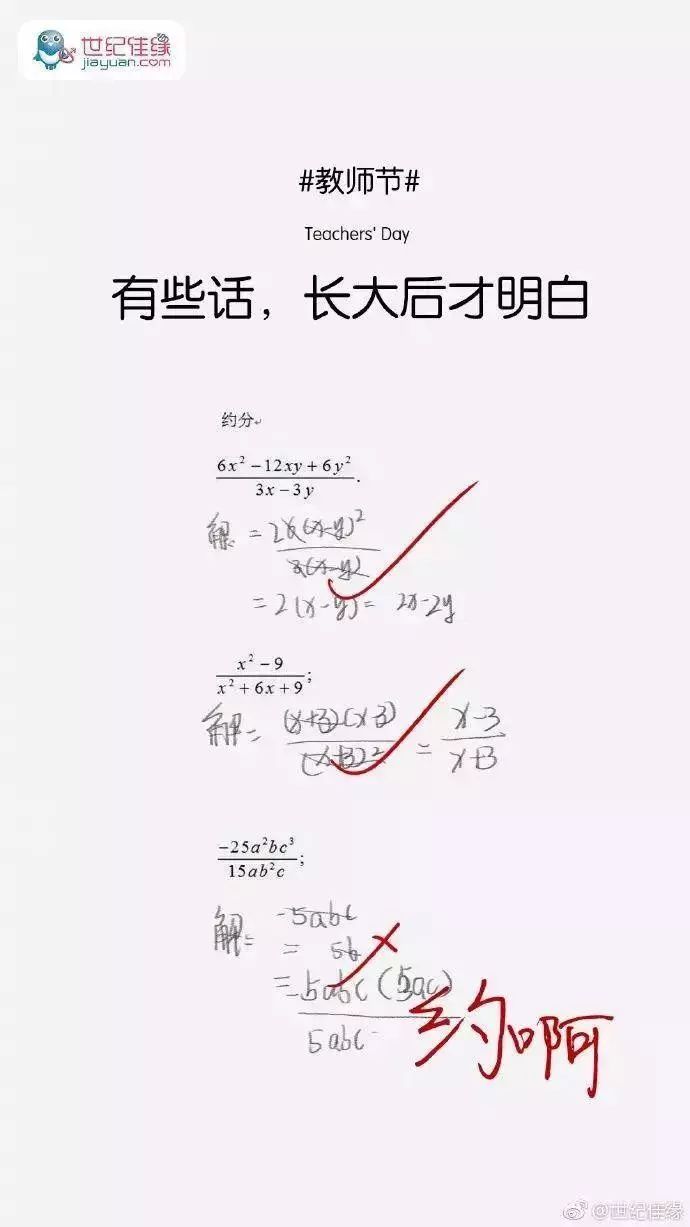 世纪佳缘
jiayuan.com
#教师节#
Teachers' Day
有些话，长大后才明白
约分
6x² − 12xy + 6y²
3x − 3y .
解 = 2x(x-y)²
3(x-y)
= 2(x-y) = 2x-2y
x² − 9
x² + 6x + 9 ;
解 = (x+3)(x-3)
(x+3)² = x-3
x+3
−25a²bc³
15ab²c ;
解 = -5abc
= 5b
= -5abc (5ac)
5abc
约啊
@世纪佳缘